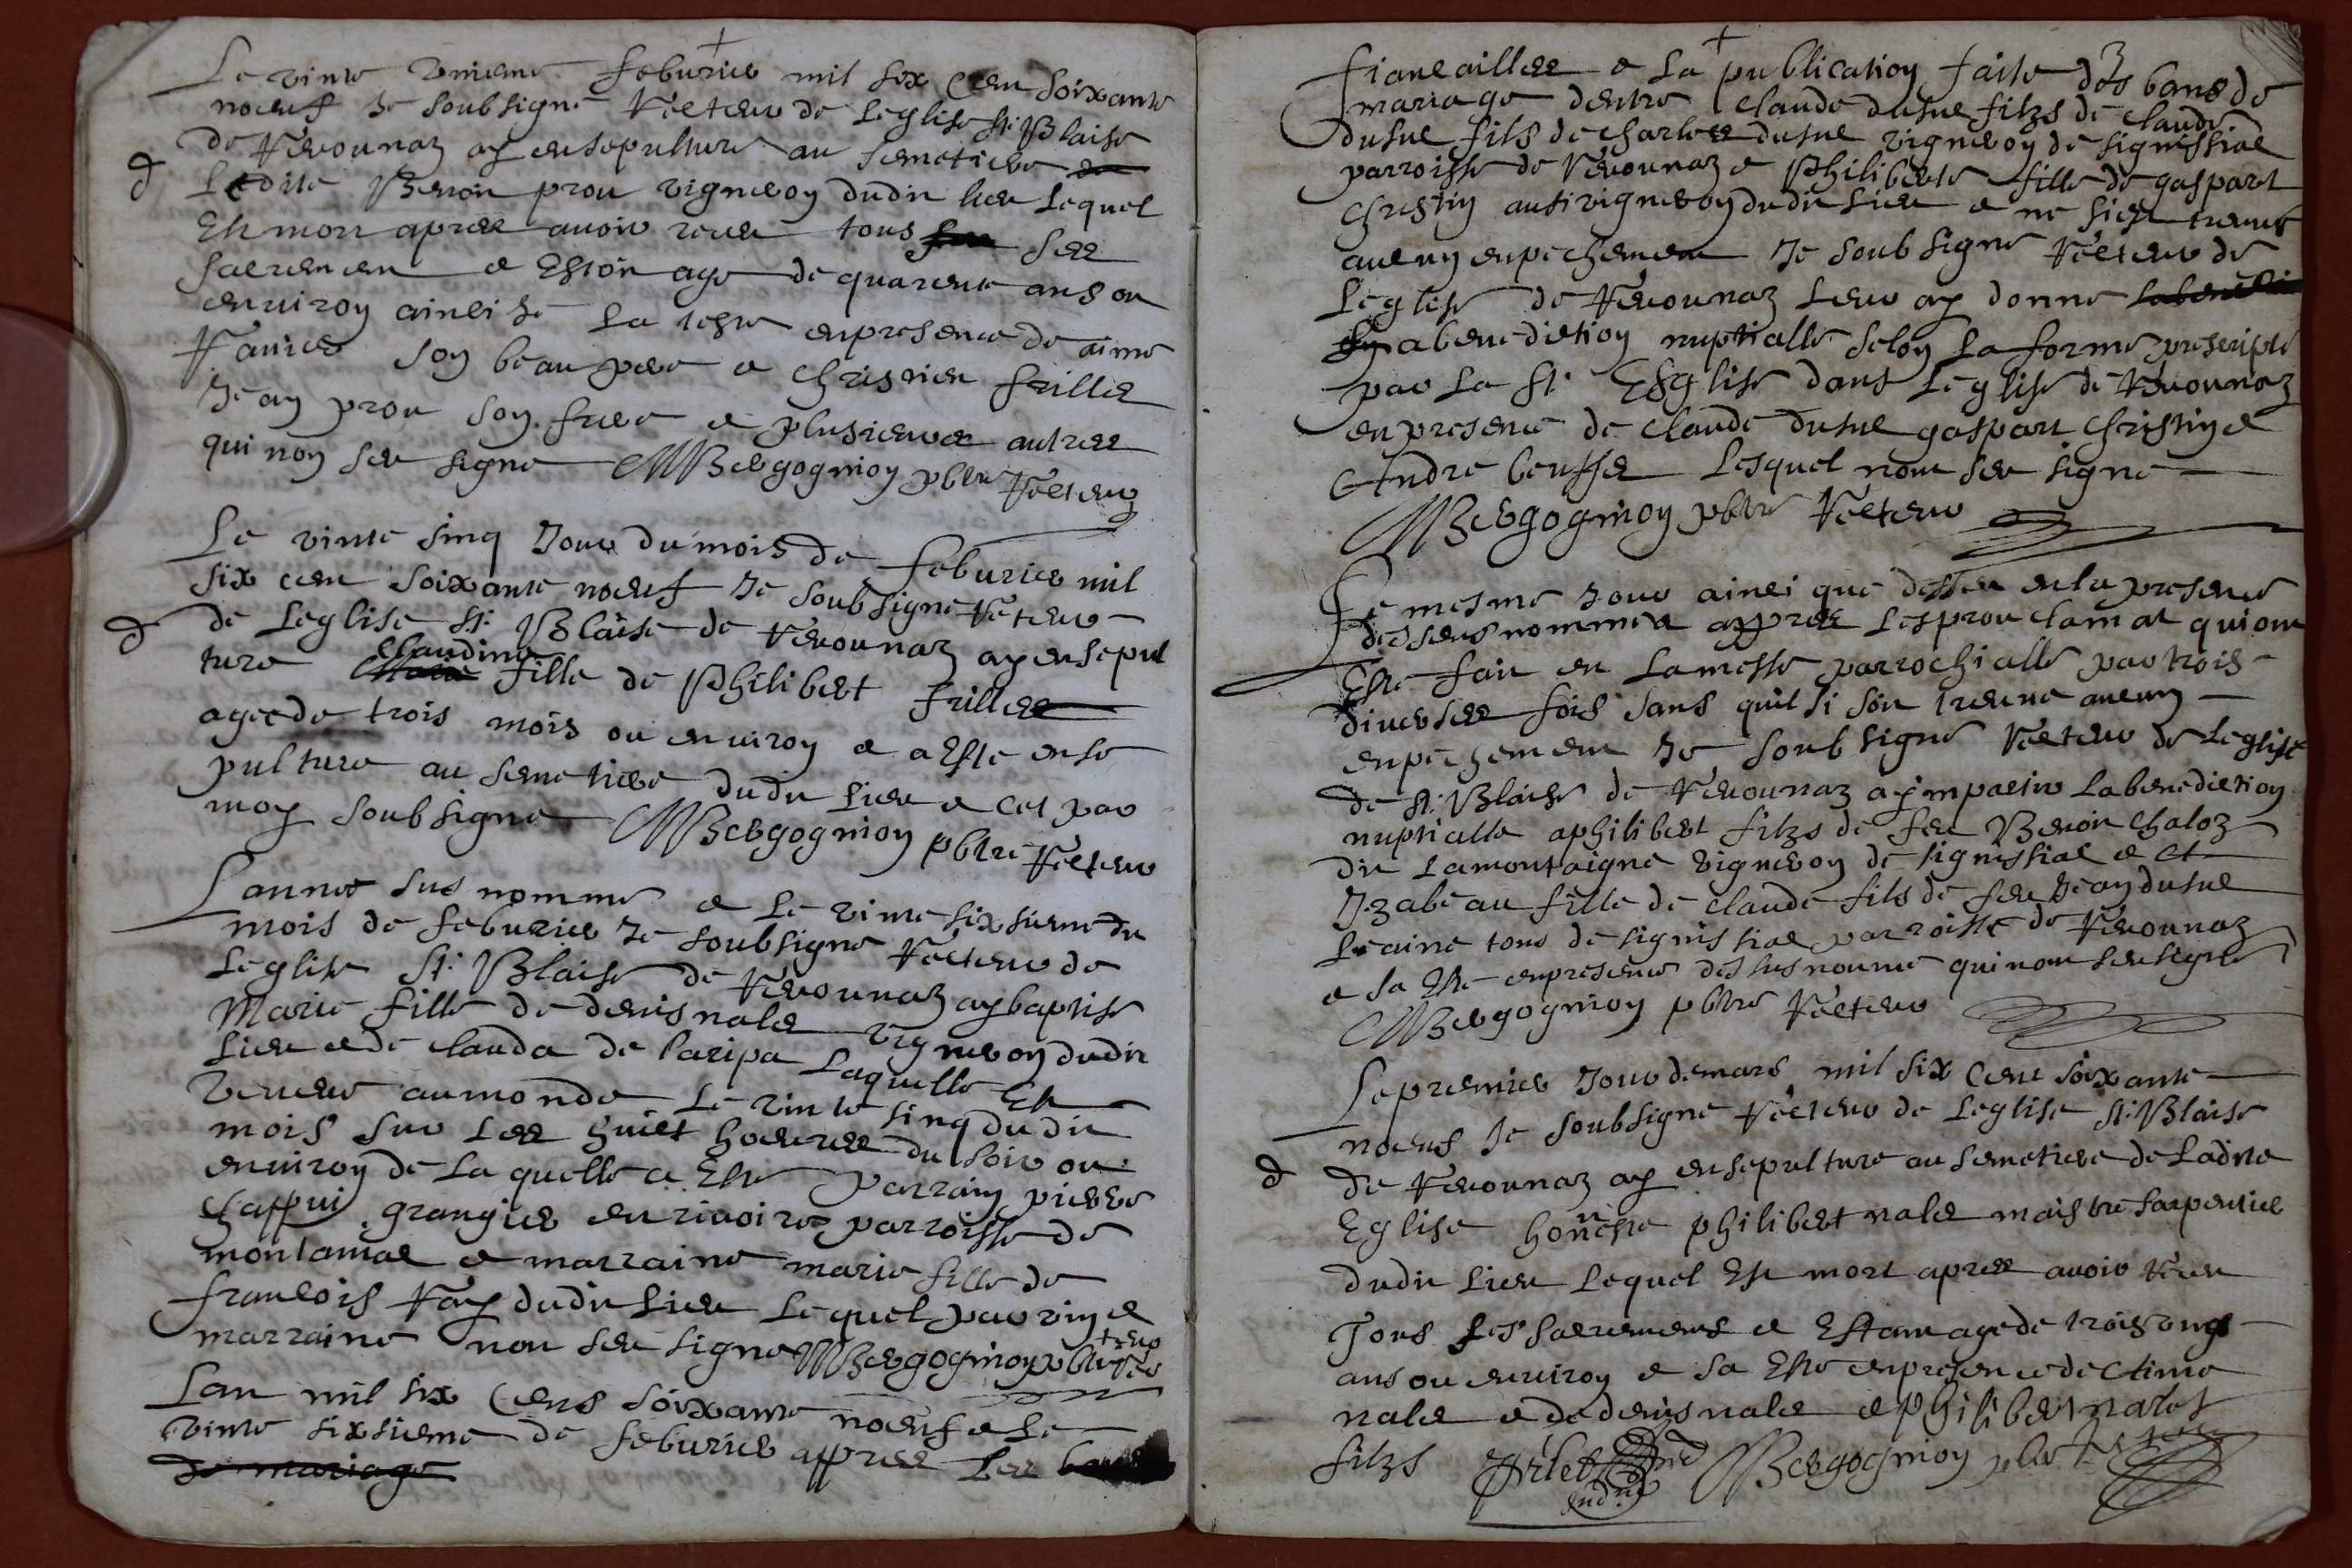 Le vinte uniesme feburier mil six cen soixante
noeuf Je soubsigné Recteur de Leglise St: Blaise
de Revonnaz ay ensepulturé au semetiere
d Ledite Benoit prou vigneron dudit lieu Lequel
Est mort apres avoir receu tous ses
sacremen e Estoit agé de quarente ans ou
environ ainci Je La teste enpresence de aimé
Ravier son beau pere e christien frillet
Jean prou son frere e plusieures autres
qui non seu signe MBergognion pbtre Recteur
Le vinte sinq Jour du mois de feburier mil
six cen soixante noeuf Je soubsigné Recteur
d de Leglise St: Blaise de Revonnaz ay ensepul
ture claudine fille de Philibert frillet
agee de trois mois ou environ e a Esté ense
pulture au semetiere dudit lieu e cet par
moy soubsigne MBergognion pbtre Recteur
Lannee sus nommé e Le vinte sixsieme du
mois de feburier Je soubsigné Recteur de
Leglise St: Blaise de Revonnaz ay baptisé
Marie fille de denis nalet vigneron dudit
Lieu e de clauda de Laripa Laquelle Est
venue au monde Le vinte sinq dudit
mois sur Les huict hoeures du soir ou
environ de La quelle a Esté parrain pierre
chappui grangier en rivoire parroisse de
montamal e marraine marie fille de
francois Ray dudit lieu Lequel parrin e
marraine non seu signe MBergognion pbtre Recteur
Lan mil six Cens soixante noeuf e Le
vinte sixsieme de feburier appres Les
de mariage
fiancailles e La publication faite des bans de
mariage dentre claude dusuc filzs de claude
dusuc fils de charles dusuc vigneron de signissiat
parroisse de Revonnaz e Philiberte fille de gaspart
christin ausi vigneron dudit lieu e ne siest treuvé
aucun enpechement Je soubsigné Recteur de
Leglise de Revonnaz Leur ay donné
La benediction nuptialle selon La forme prescripte
par La St: Esglise dans Leglise de Revonnaz
enpresence de claude dusuc gaspart christin e
Andre Lesquel nont seu signe
MBergognion pbtre Recteur
Le mesme Jour ainci que dessu en la presence
des sus nommes appres Les prouclamat qui ont
Esté fait en La messe parrochialle par trois
diverses fois sans quil si soit treuvé aucun
enpechement Je soubsigné Recteur de Leglise
de St: Blaise de Revonnaz ay impartir La benediction
nuptialle a philibert filzs de feu Benoit chaloz
dit Lamontaigne vigneron de signissiat e et
Izabeau fille de claude fils de feu Jean dusuc
Leainé tous de signissiat parroisse de Revonnaz
e sa Esté enpresence des susnommé qui nont seu signé
MBergognion pbtre Recteur
Le premier Jour de mars mil six Cens soixante
noeuf Je soubsigné Recteur de Leglise St: Blaise
d de Revonnaz ay ensepulturé au semetiere de Ladite
Eglise honneste philibert nalet maistre sarpentier
dudit lieu Lequel Est mort apres avoir Receu
Tous Les sacremens e Estant agé de trois vings
ans ou environ e sa Esté enpresence de Etime
nalet e de denis nalet e philibert nalet
filzs MBergognion pbtre Recteur